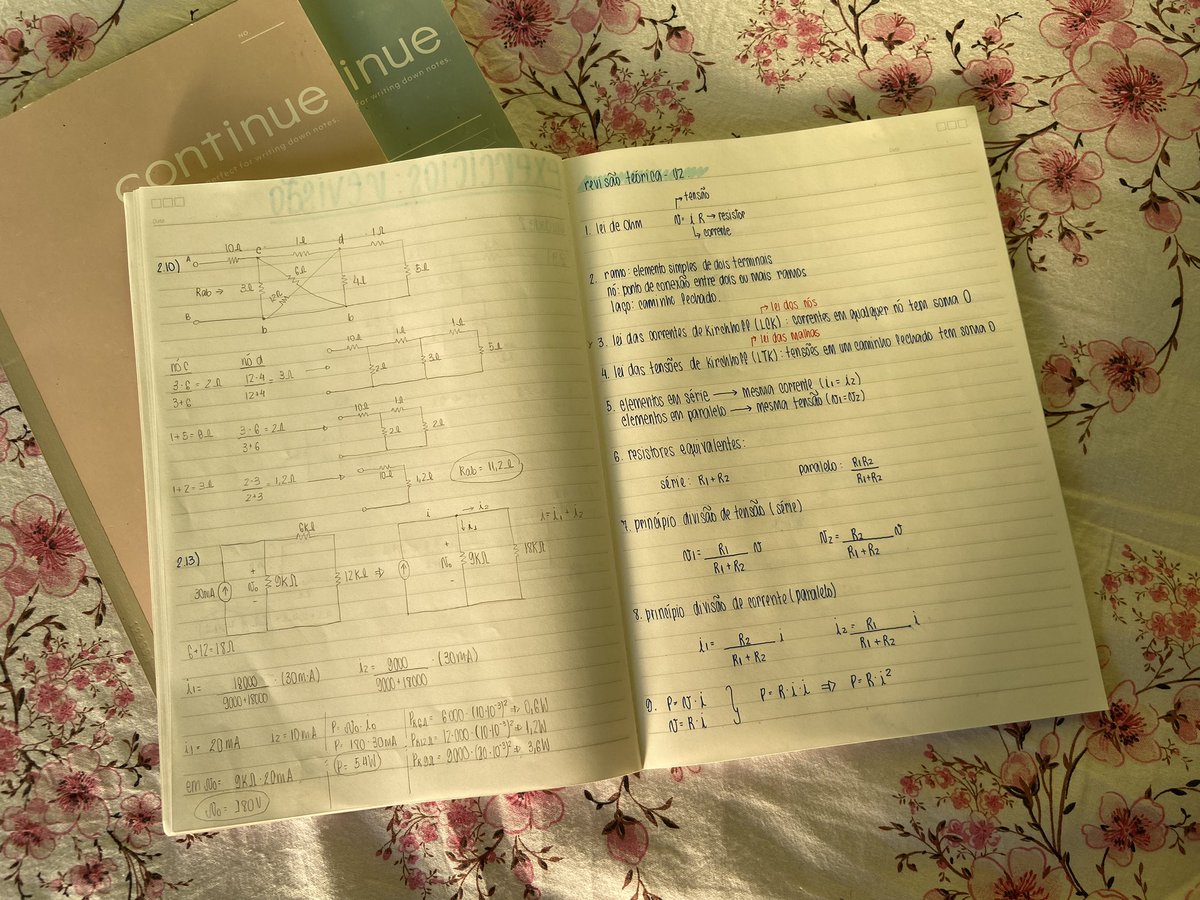 continue
perfect for writing down notes.
inue
for writing down notes.
NO
2.10)
A
10Ω
c
1Ω
d
1Ω
Rab →
3Ω
6Ω
12Ω
4Ω
5Ω
B
b
b
nó c
nó d
3·6 = 2Ω
3+6
12·4 = 3Ω
12+4
10Ω
1Ω
1Ω
2Ω
3Ω
5Ω
3·6 = 2Ω
3+6
10Ω
1Ω
2Ω
2Ω
1+2 = 3Ω
2·3 = 1,2Ω
2+3
10Ω
1,2Ω
Rab = 11,2Ω
2.13)
6KΩ
30mA
+
No
-
9KΩ
12KΩ
⇒
i
i1
→ i2
i = i1 + i2
+
No
-
9KΩ
18KΩ
6+12=18Ω
i1 = 18000 · (30m·A)
9000+18000
i2 = 9000 · (30mA)
9000+18000
i1 = 20mA
i2 = 10mA
em No = 9KΩ·20mA
No = 180V
P = No·io
P = 180·30mA
P = 5.4W
PR6Ω = 6000·(10·10⁻³)² ⇒ 0,6W
PR12Ω = 12·000·(10·10⁻³)² ⇒ 1,2W
PR9Ω = 9000·(20·10⁻³)² ⇒ 3,6W
revisão teórica - 02
1. lei de Ohm
→ tensão
v = i R → resistor
↳ corrente
2. ramo: elemento simples de dois terminais
nó: ponto de conexão entre dois ou mais ramos
laço: caminho fechado.
→ lei dos nós
3. lei das correntes de Kirchhoff (LCK): correntes em qualquer nó tem soma 0
→ lei das malhas
4. lei das tensões de Kirchhoff (LTK): tensões em um caminho fechado tem soma 0
5. elementos em série → mesma corrente (i1 = i2)
elementos em paralelo → mesma tensão (v1=v2)
6. resistores equivalentes:
série: R1+R2
paralelo: R1R2
R1+R2
7. princípio divisão de tensão (série)
v1 = R1 v
R1+R2
v2 = R2 v
R1+R2
8. princípio divisão de corrente (paralelo)
i1 = R2 i
R1+R2
i2 = R1 i
R1+R2
9. P = v·i
v = R·i
P = R·i·i ⇒ P = R·i²